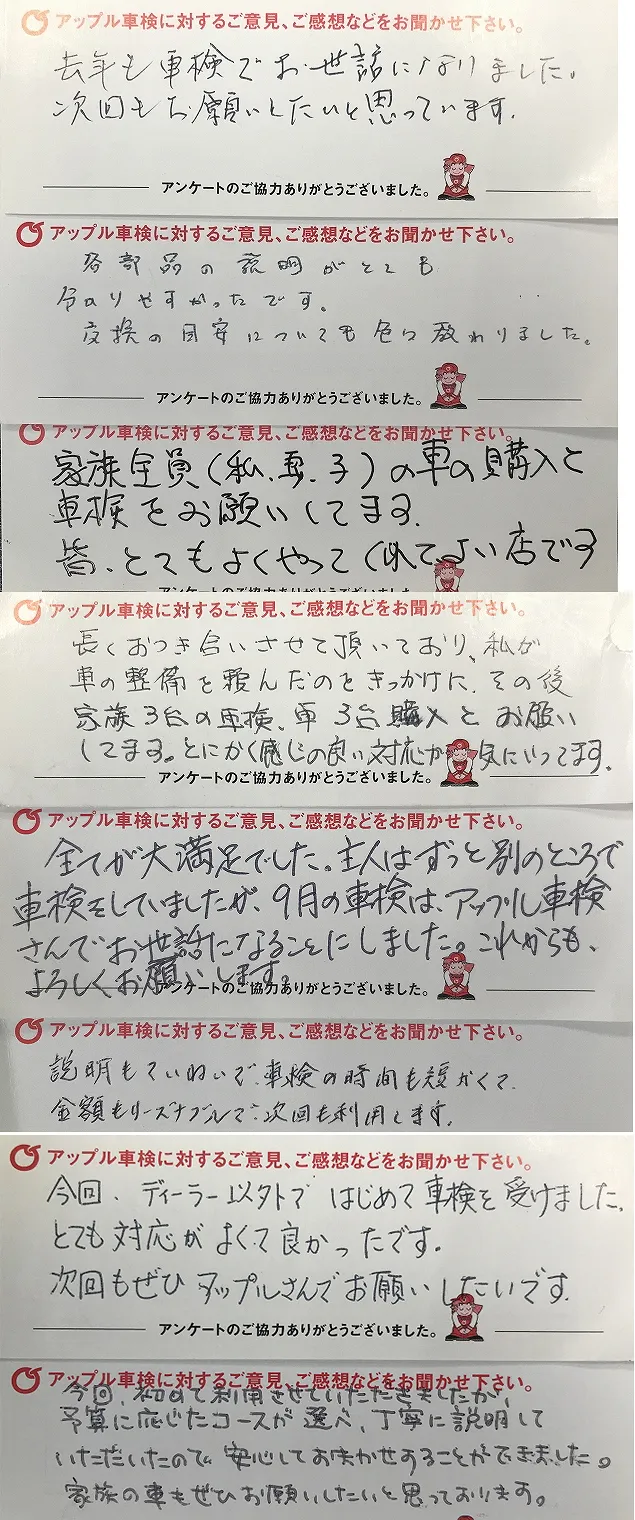 アップル車検に対するご意見、ご感想などをお聞かせ下さい。
去年も車検でお世話になりました。
次回もお願いしたいと思っています。
アンケートのご協力ありがとうございました。
アップル車検に対するご意見、ご感想などをお聞かせ下さい。
各部品の説明がとても
分かりやすかったです。
交換の目安についても色々教わりました。
アンケートのご協力ありがとうございました。
アップル車検に対するご意見、ご感想などをお聞かせ下さい。
家族全員(私、妻、子)の車の購入と
車検をお願いしてます。
皆、とてもよくやってくれて、よい店です
アンケートのご協力ありがとうございました。
アップル車検に対するご意見、ご感想などをお聞かせ下さい。
長くおつき合いさせて頂いており、私が
車の整備を頼んだのをきっかけに、その後
家族3台の車検、車3台購入とお願い
してます。とにかく感じの良い対応が気にいってます。
アンケートのご協力ありがとうございました。
アップル車検に対するご意見、ご感想などをお聞かせ下さい。
全てが大満足でした。主人はずっと別のところで
車検をしていましたが、9月の車検は、アップル車検
さんでお世話になることにしました。これからも、
よろしくお願いします。
アンケートのご協力ありがとうございました。
アップル車検に対するご意見、ご感想などをお聞かせ下さい。
説明もていねいで、車検の時間も短かくて、
金額もリーズナブルで、次回も利用します。
アップル車検に対するご意見、ご感想などをお聞かせ下さい。
今回、ディーラー以外ではじめて車検を受けました。
とても対応がよくて良かったです。
次回もぜひアップルさんでお願いしたいです。
アンケートのご協力ありがとうございました。
アップル車検に対するご意見、ご感想などをお聞かせ下さい。
今回、初めて利用させていただきましたが、
予算に応じたコースが選べ、丁寧に説明して
いただいたので、安心してお任せすることができました。
家族の車もぜひお願いしたいと思っております。